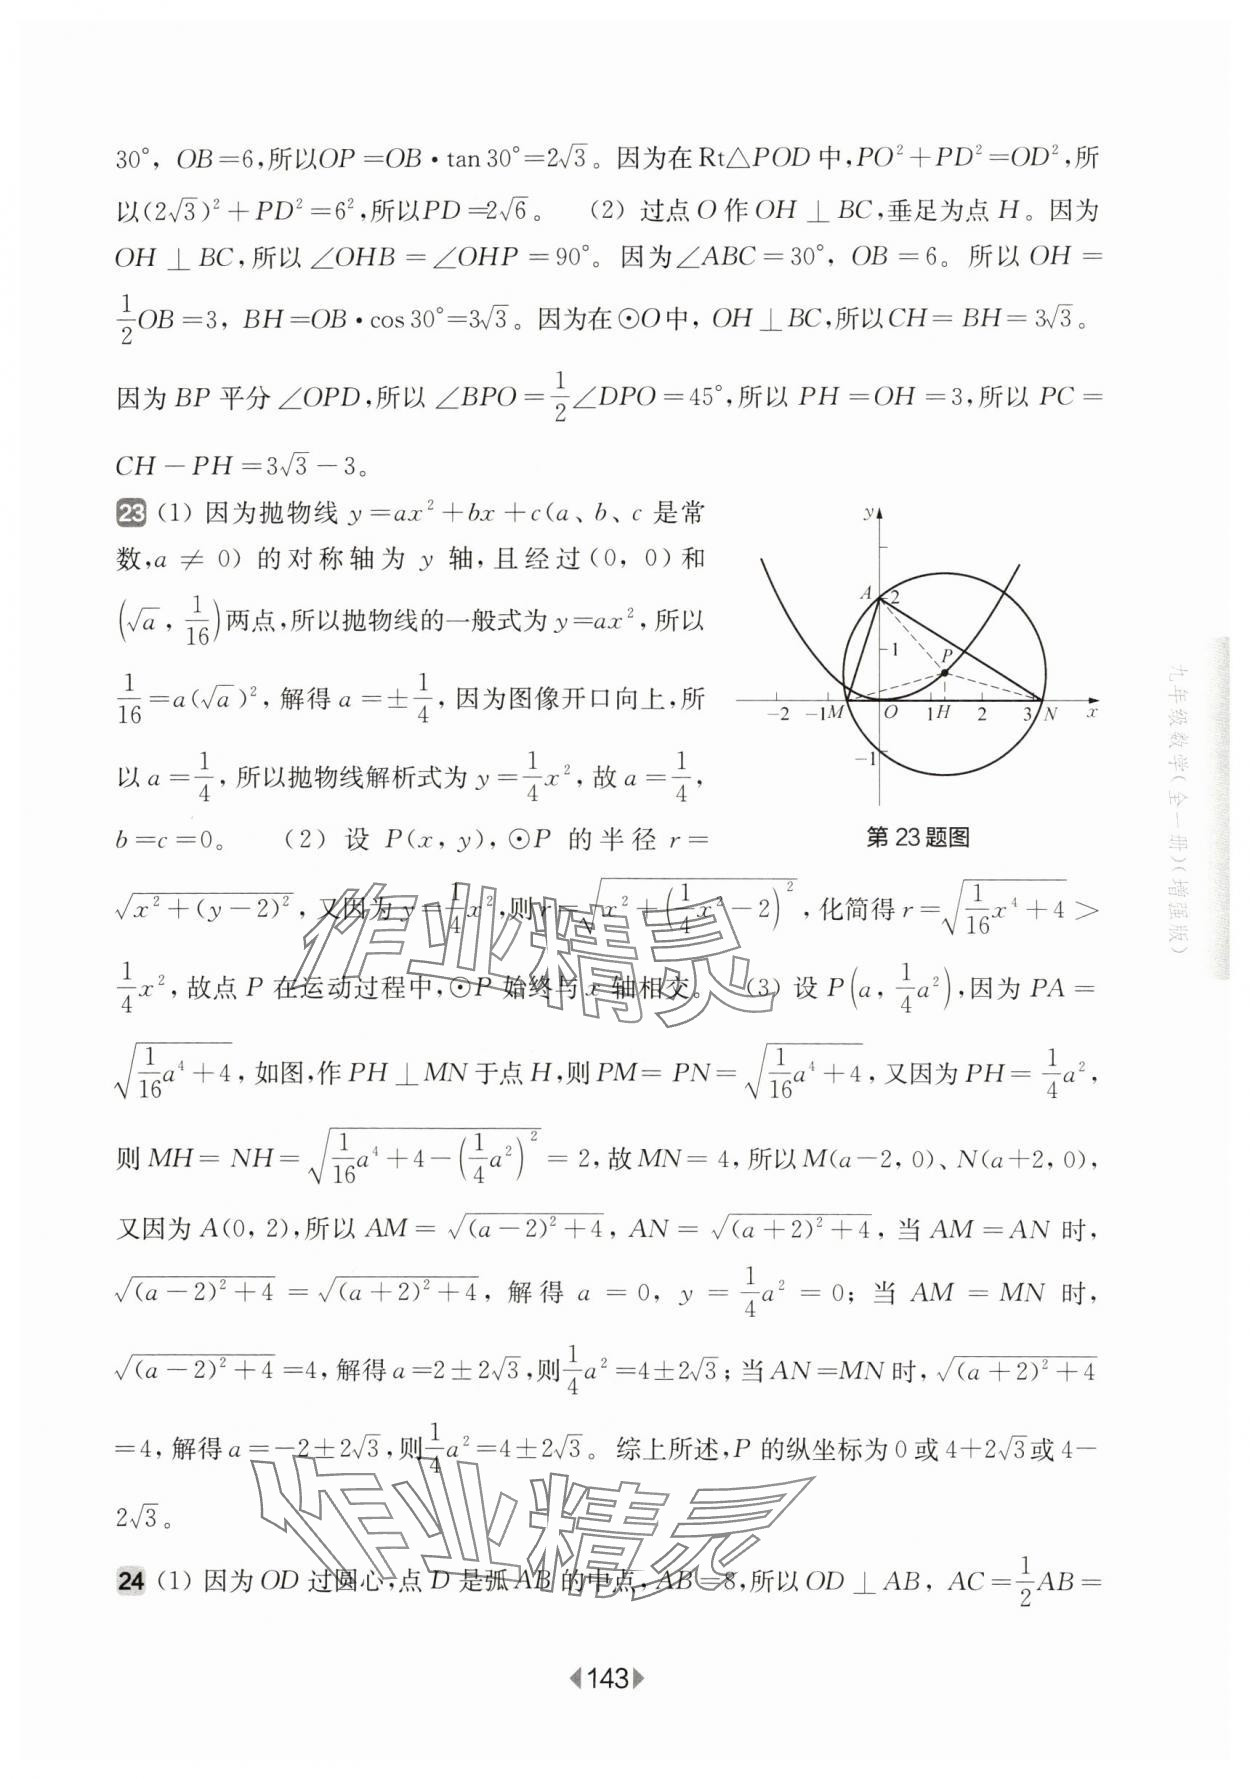 30°, OB=6,所以OP=OB·tan30°=2√3。因为在Rt△POD中,PO²+PD²=OD²,所
以(2√3)²+PD²=6²,所以PD=2√6。 (2) 过点O作OH⊥BC,垂足为点H。因为
OH⊥BC,所以∠OHB=∠OHP=90°。因为∠ABC=30°, OB=6。所以OH=
1/2OB=3, BH=OB·cos30°=3√3。因为在⊙O中, OH⊥BC,所以CH=BH=3√3。
因为BP平分∠OPD,所以∠BPO=1/2∠DPO=45°,所以PH=OH=3,所以PC=
CH-PH=3√3-3。
23 (1) 因为抛物线y=ax²+bx+c(a、b、c是常
数,a≠0)的对称轴为y轴,且经过(0, 0)和
(√a, 1/16)两点,所以抛物线的一般式为y=ax²,所以
1/16=a(√a)²,解得a=±1/4,因为图像开口向上,所
以a=1/4,所以抛物线解析式为y=1/4x²,故a=1/4,
b=c=0。 (2) 设P(x, y),⊙P的半径r=
y
A
2
1
P
-2
-1
M
O
1
H
2
3
N
x
-1
第23题图
√(x²+(y-2)²),又因为y=1/4x²,则r=√(x²+(1/4x²-2)²),化简得r=√(1/16x⁴+4)>
1/4x²,故点P在运动过程中,⊙P始终与x轴相交。 (3) 设P(a, 1/4a²),因为PA=
√(1/16a⁴+4),如图,作PH⊥MN于点H,则PM=PN=√(1/16a⁴+4),又因为PH=1/4a²,
则MH=NH=√(1/16a⁴+4-(1/4a²)²)=2,故MN=4,所以M(a-2, 0)、N(a+2, 0),
又因为A(0, 2),所以AM=√((a-2)²+4), AN=√((a+2)²+4),当AM=AN时,
√((a-2)²+4)=√((a+2)²+4),解得a=0, y=1/4a²=0;当AM=MN时,
√((a-2)²+4)=4,解得a=2±2√3,则1/4a²=4±2√3;当AN=MN时,√((a+2)²+4)
=4,解得a=-2±2√3,则1/4a²=4±2√3。综上所述,P的纵坐标为0或4+2√3或4-
2√3。
24 (1) 因为OD过圆心,点D是弧AB的中点,AB=8,所以OD⊥AB, AC=1/2AB=
143
九年级数学(全一册)(增强版)
作业精灵
作业精灵